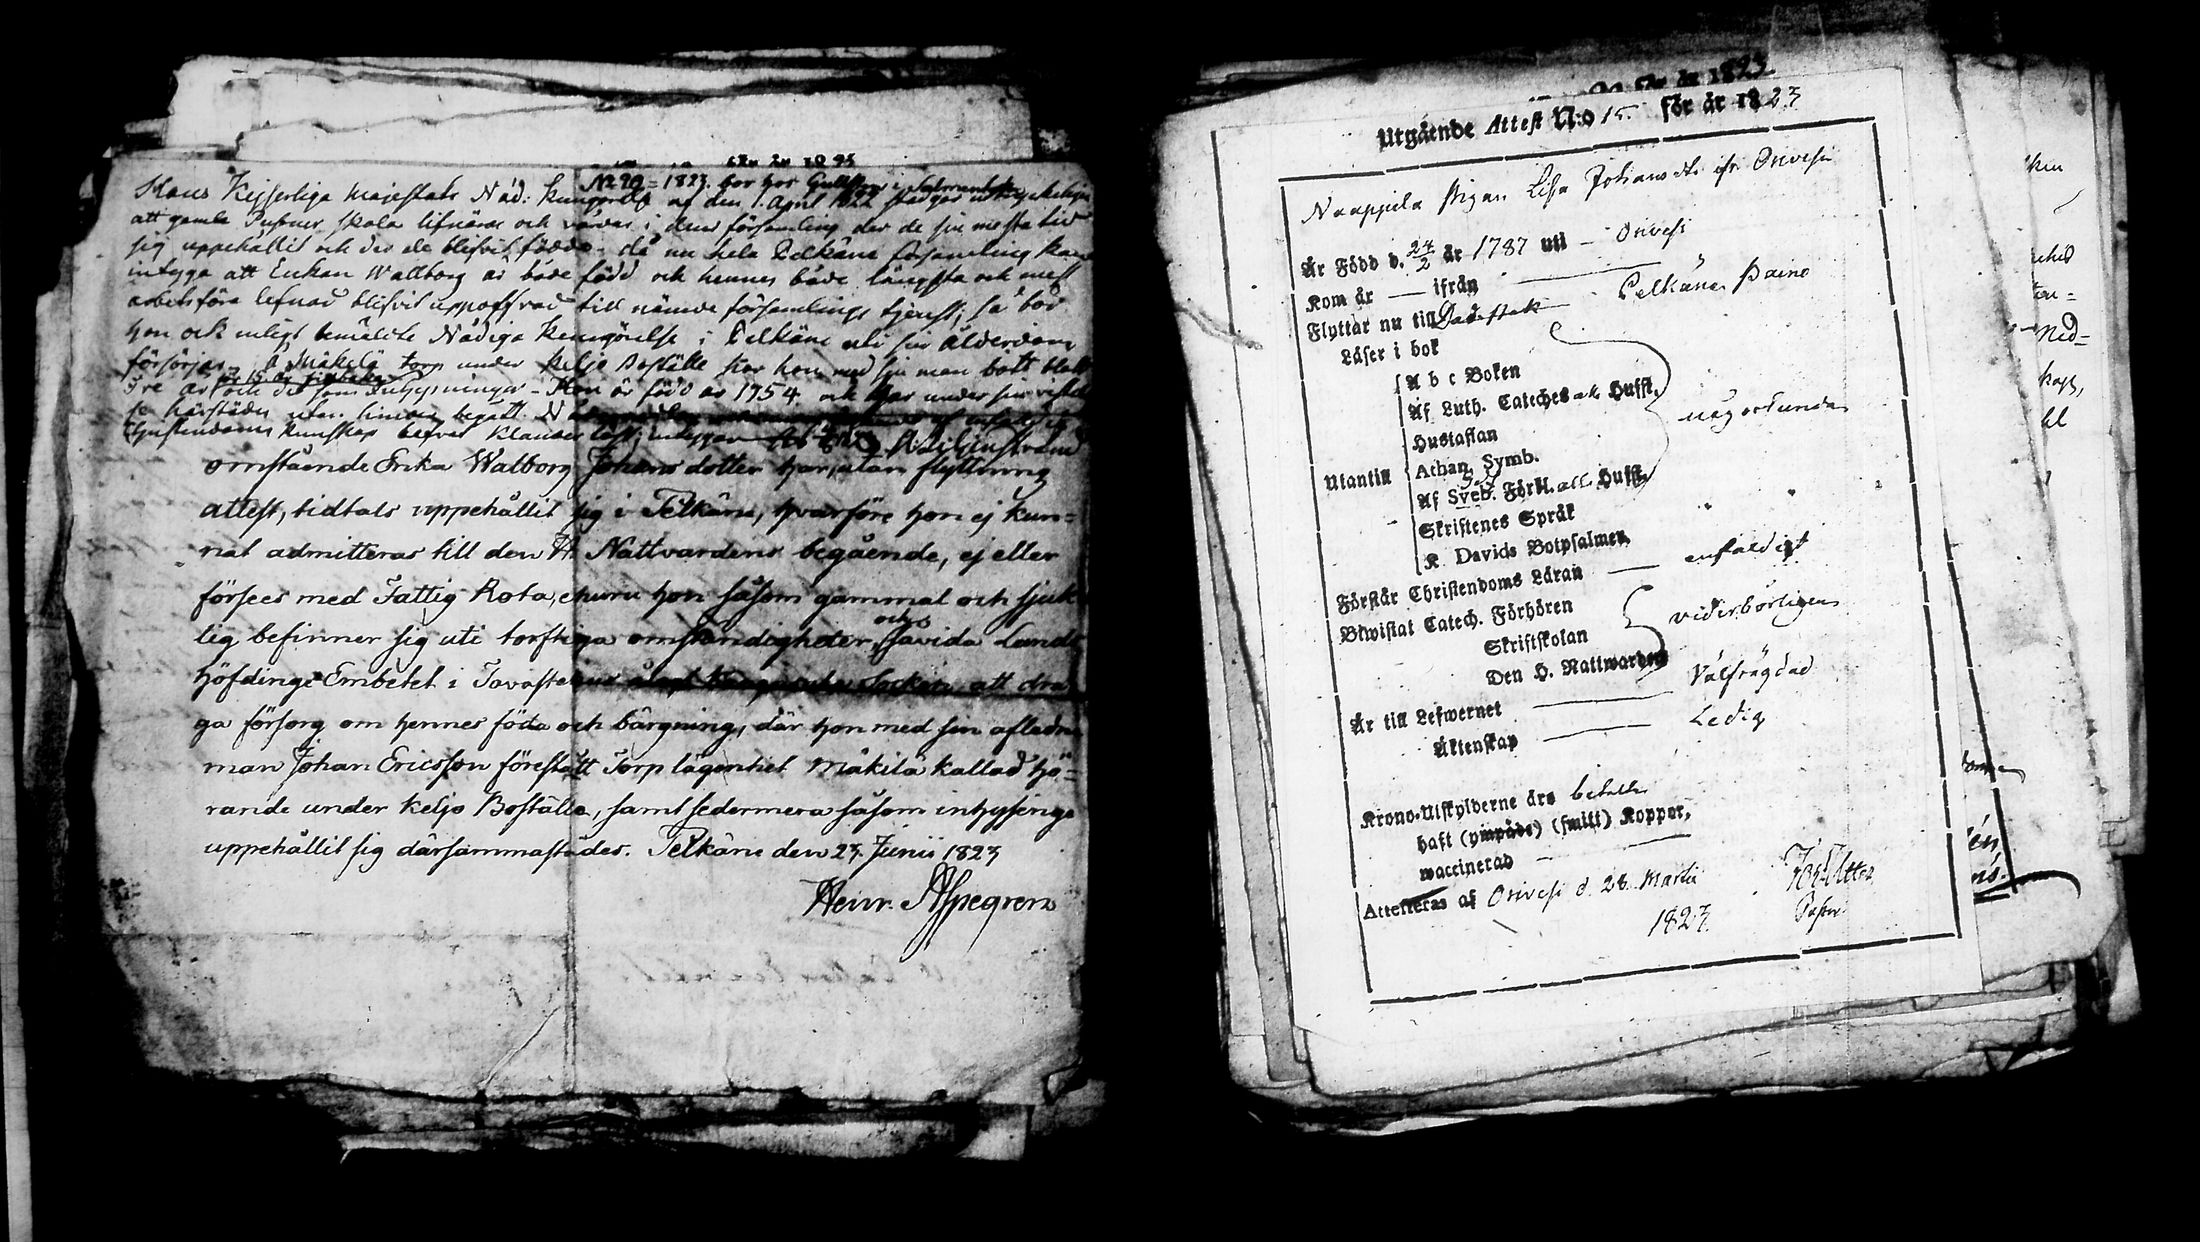 N:o 20 = 1823. bor hos Gullsten i Salmentaka
Hans Kejserliga Majestäts Nåd: Kungörelse af den 1. April 1822 stadgar
att gamle Personer skola lifnäras och vårdas i den församling der de sin mesta tid
sig uppehållit och der de blifvit födde – då nu hela Pelkäne församling kan
intyga att Enkan Wallborg är både född och hennes både längsta och mest
arbetsföra lefnad blifvit uppoffrad till nämde församlings tjenst; så bör
hon ock enligt bemäldte Nådiga Kungörelse i Pelkäne uti sin ålderdom
försörjas. På Mäkelä torp under Keljo Boställe har hon med sin man bott blott
för 15 år tillbaka
och der som Inhysningar – Hon är född år 1754 och har under sin vistelse
härstädes utan
Christendoms kunskap befres klander löst; intygar
omstående Erika Walborg Johans dotter har, utan flyttning
attest, tidtals uppehållit sig i Pelkäne, hvarföre hon ej kun=
nat admitteras till den H. Nattvardens begående, ej eller
försees med Fattig Rota, ehuru hon såsom gammal och sjuk
lig befinner sig uti torftiga omständigheter, och såvida Lands
höfdinge Embetet i Tavastehus ålagt Kangasala Socken att dra
ga försorg om hennes föda och bärgning, där hon med sin aflednе
man Johan Ericsson förestått Torplägenhet Mäkilä kallad hö=
rande under Keljo Boställe, samt sedermera såsom inhysinge
uppehållit sig därsammastädes. Pelkäne den 23. Junii 1823
Heinr. Aspegren
för år 1823
Utgående Attest N:o 15. för år 1823
Naappila Pigan Lisa Johansdr ifr. Orivesi
Är Född d. 24/2 år 1787 uti – Orivesi
Kom år — ifrån —
Flyttar nu till Pelkäne
Läser i bok
A b c Boken
Af Luth. Cateches och Hufft.
Hustaflan
Utantill
Athan. Symb.
Af Sveb. Förkl. all. Hufft.
Skriftenes Språk
K. Davids Botpsalmer
någorlunda
Förstår Christendoms Läran — enfaldigt
Biwistat Catech. Förhören
Skriftskolan
Den H. Nattwarden
vederbörligen
Är till Lefwernet — Välfrägdad
Äktenskap — Ledig
Krono-Utskylderne äro betalte
haft (ympade) (smitt) Koppor,
waccinerad —
Attesteras af Orivesi d. 28. Martii
1823.
Pastor